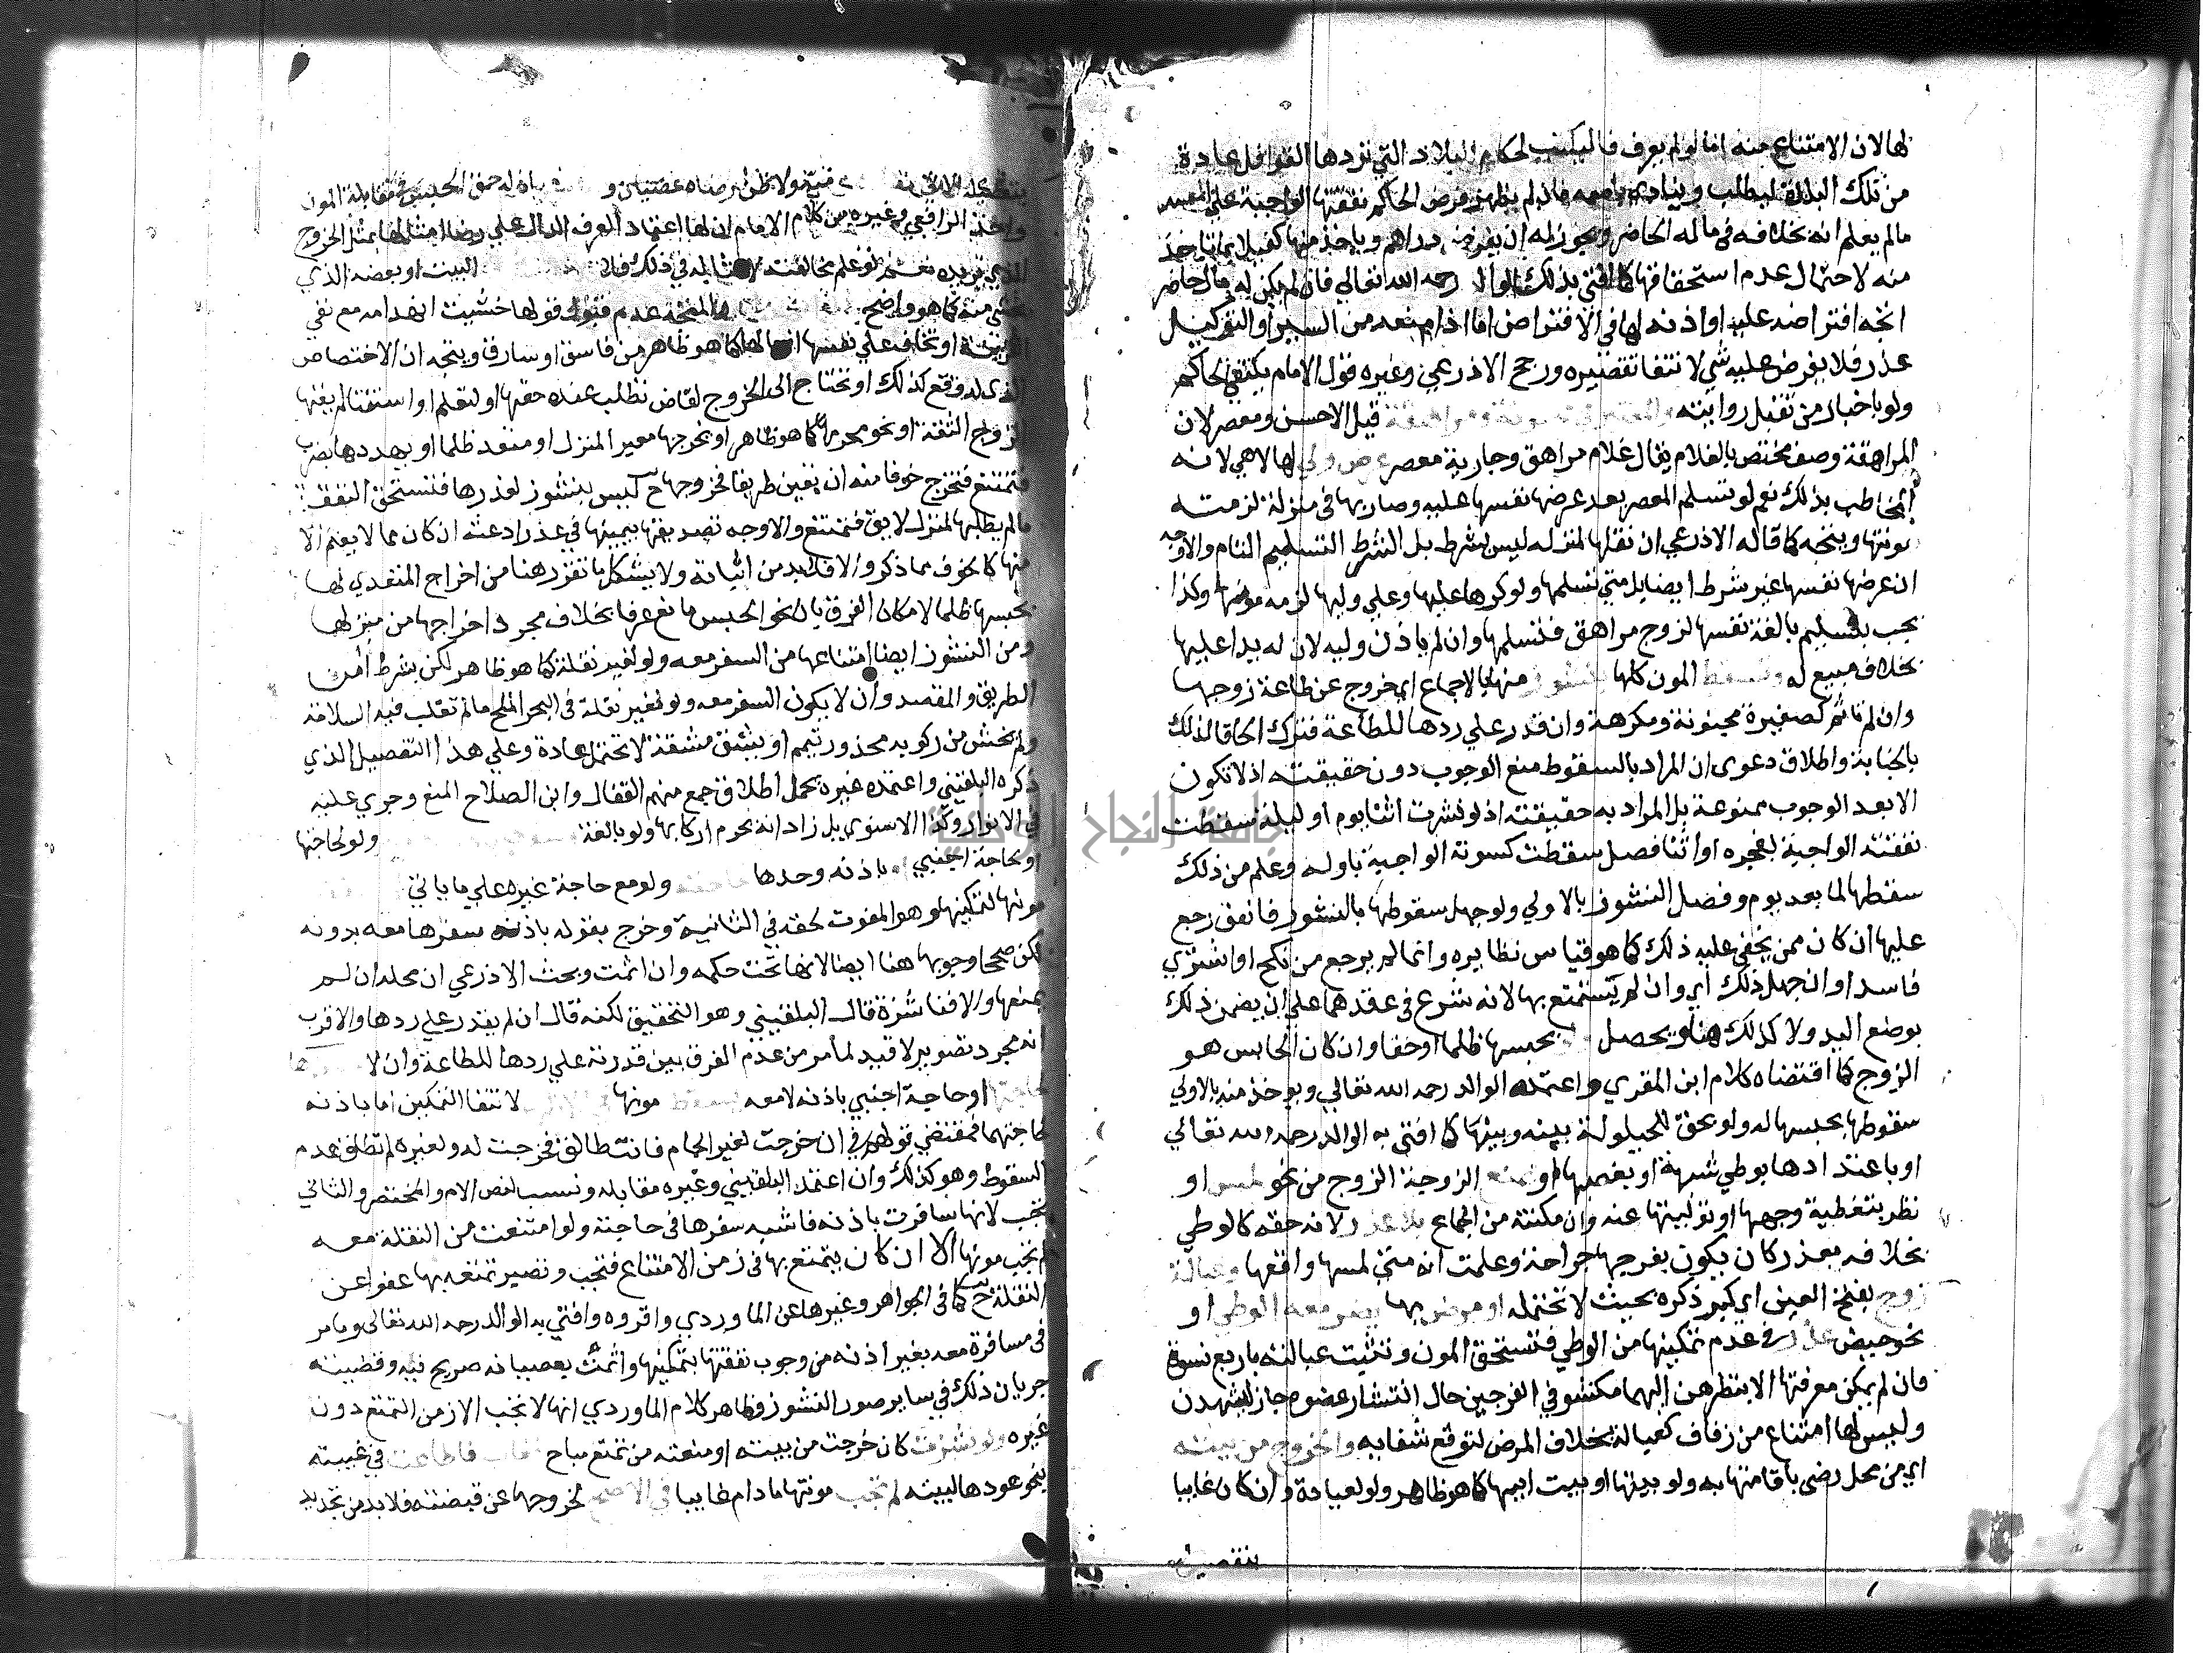 لها لان الامتناع منه اما لو لم يعرف فاليكتب لحكام البلاد التي تردها القوافل عادة
من تلك البلدة ليطلب وينادي باسمه فان لم يظهر فرض الحاكم نفقتها الواجبة على المعسر
مالم يعلم انه بخلافه في ماله الحاضر ويجوز له ان يفرض دراهم وياخذ منها كفيلا بما تاخذ
منه لاحتمال عدم استحقاقها كما افتى بذلك الوالد رحمه الله تعالي فان لم يكن له مال حاضر
اتجه اقتراضه عليه او اذنه لها في الاقتراض اما اذا منعه من السير او التوكيل
عذر فلا يفرض عليه شي لانتفا تقصيره ورجح الاذرعي وغيره قول الامام يكتفي الحاكم
ولو باخبار من تقبل روايته قيل الاحسن ومعصر لان
المراهقة وصف مختص بالغلام يقال غلام مراهق وجارية معصر عرض ولي لها لا هي لانه
المخاطب بذلك نعم لو تسلم المعصر بعد عرضها نفسها عليه وصار بها في منزله لزمته
مونتها ويتجه كما قاله الاذرعي ان نقلها لمنزله ليس بشرط بل الشرط التسليم التام والاوجه
ان عرضها نفسها غير شرط ايضا بل متي تسلمها ولو كرها عليها وعلي وليها لزمه مونها وكذا
يجب بتسليم بالغة نفسها لزوج مراهق فتسلمها وان لم ياذن وليه لان له يدا عليها
بخلاف مبيع له وتسقط المون كلها بنشوز منها بالاجماع اي خروج عن طاعة زوجها
وان لم تاثم كصغيرة مجنونة ومكرهة وان قدر علي ردها للطاعة فترك الحاقا لذلك
بالجناية واطلاق دعوى ان المراد بالسقوط منع الوجوب دون حقيقته اذ لا تكون
الا بعد الوجوب ممنوعة بل المراد به حقيقته اذ لو نشزت اثنا يوم او ليلة سقطت
نفقته الواجبة بفجره او اثنا فصل سقطت كسوته الواجبة باوله وعلم من ذلك
سقطها لما بعد يوم وفصل النشوز بالاولي ولو جهل سقوطها بالنشوز فانفق رجع
عليها ان كان ممن يخفى عليه ذلك كما هو قياس نظايره وانما لم يرجع من نكح او اشترى
فاسدا وان جهل ذلك اي وان لم يستمتع بها لانه شرع في عقدهما على ان يضمن ذلك
بوضع اليد ولا كذلك هنا ويحصل بحبسها ظلما او حقا وان كان الحابس هو
الزوج كما اقتضاه كلام ابن المقري واعتمده الوالد رحمه الله تعالي ويوخذ منه بالاولي
سقوطها بحبسها له ولو بحق للحيلولة بينه وبينها كما افتى به الوالد رحمه الله تعالي
او باعتدادها بوطي شبهة او بغصبها او بمنع الزوجة الزوج من نحو لمس او
نظر بتغطية وجهها او توليتها عنه وان مكنته من الجماع بلا عذر لانه حقه كالوطي
بخلافه بعذر كان يكون بفرجها جراحة وعلمت انه متي لمسها واقعها وعبالة
زوج بفتح العين اي كبر ذكره بحيث لا تحتمله او مرض بها يضر معه الوطي او
نحو حيض عذر في عدم تمكينها من الوطي فتستحق المون وتثبت عبالته باربع نسوة
فان لم يمكن معرفتها الا بنظرهن اليهما مكشوفي الفرجين حال انتشار عضوه جاز ليشهدن
وليس لها امتناع من زفاف لعبالة بخلاف المرض لتوقع شفايه والخروج من بيته
اي من محل رضي باقامتها به ولو بيتها او بيت ابيها كما هو ظاهر ولو لعيادة وان كان غايبا
بتفصيله
بتفصيله الاتي فيه ولا ظن لرضاه عصيان و اذ له حق الحبس في مقابلة المون
واخذ الرافعي وغيره من كلام الامام ان لها اعتماد العرف الدال علي رضا امثالها بمثل الخروج
الذي تريده نعم لو علم مخالفته لامثاله في ذلك فلا البيت او بعضه الذي
يخشى منه كما هو واضح المتجه عدم قبول قولها خشيت انهدامه مع نفي
القرينة او تخاف علي نفسها او مالها كما هو ظاهر من فاسق او سارق ويتجه ان الاختصاص
الذي له وقع كذلك او تحتاج الى الخروج لقاض تطلب عنده حقها او لتعلم او استفتا لم يغنها
الزوج الثقة او نحو محرمها كما هو ظاهر او يخرجها معير المنزل او متعد ظلما او يهددها بضرب
فتمتنع فتخرج خوفا منه ان تعين طريقا فخروجها ح ليس بنشوز لعذرها فتستحق النفقة
مالم يطلبها لمنزل لايق فتمتنع والاوجه تصديقها بيمينها في عذر ادعته ان كان مما لا يعلم الا
منها كالخوف مما ذكر والا فلا بد من اثباته ولا يشكل ما تقرر هنا من اخراج المتعدي لها
بحبسها ظلما لامكان الفرق بان نحو الحبس مانع عرفا بخلاف مجرد اخراجها من منزلها
ومن النشوز ايضا امتناعها من السفر معه ولو لغير نقلة كما هو ظاهر لكن بشرط امن
الطريق والمقصد وان لا يكون السفر معه ولو لغير نقلة في البحر الملح مالم تغلب فيه السلامة
ولم يخش من ركوبه محذور تيمم او يشق مشقة لا تحتمل عادة وعلي هذا التفصيل الذي
ذكره البلقيني واعتمده غيره يحمل اطلاق جمع منهم القفال وابن الصلاح المنع وجرى عليه
في الانوار وكذا الاسنوي بل زاد انه يحرم اركابها ولو بالغة ولو لحاجتها
او لحاجة اجنبي باذنه وحدها ولو مع حاجة غيره علي ما ياتي
مونها لتمكينها وهو المفوت لحقه في الثانية وخرج بقوله باذنه سفرها معه بدونه
لكن صححا وجوبها هنا ايضا لانها تحت حكمه وان اثمت وبحث الاذرعي ان محله ان لم
يمنعها والا فناشزة قال البلقيني وهو التحقيق لكنه قال ان لم يقدر علي ردها والاقرب
انه مجرد تصوير لا قيد لما مر من عدم الفرق بين قدرته علي ردها للطاعة وان لا
او حاجة اجنبي باذنه لا معه تسقط مونها لانتفا التمكين اما باذنه
لحاجتهما فمقتضي قولهم في ان خرجت لغير الحمام فانت طالق فخرجت له ولغيره لم تطلق عدم
السقوط وهو كذلك وان اعتمد البلقيني وغيره مقابله ونسب لنص الام والمختصر والثاني
تجب لانها سافرت باذنه فاشبه سفرها في حاجته ولو امتنعت من النقلة معه
لم تجب مونها الا ان كان يتمتع بها في زمن الامتناع فتجب وتصير تمتعه بها عفوا عن
النقلة ح كما في الجواهر وغيرها عن الماوردي واقروه وافتي به الوالد رحمه الله تعالي وما مر
في مسافرة معه بغير اذنه من وجوب نفقتها بتمكينها واثمت بعصيانه صريح فيه وقضيته
جريان ذلك في ساير صور النشوز وظاهر كلام الماوردي انها لا تجب الا زمن التمتع دون
غيره ولو نشزت كان خرجت من بيته او منعته من تمتع مباح فغاب فاطاعت في غيبته
بنحو عودها لبيته لم تجب مونتها ما دام غايبا في الاصح لخروجها عن قبضته فلا بد من تجديد
جامعة النجاح الوطنية